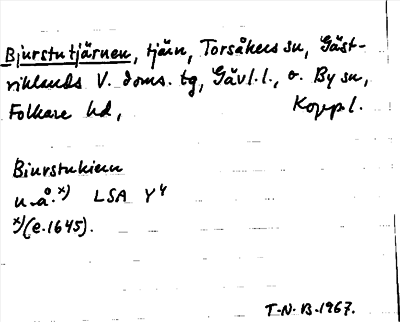 Bjurstutjärnen, tjärn, Torsåkers sn, Gäst-
riklands V. doms. tg, Gävl.l., o. By sn,
Folkare hd, Kopp l.
Biurstukienn
u.å.x) LSA Y4
x)(e.1645).
T-N-B-1967.